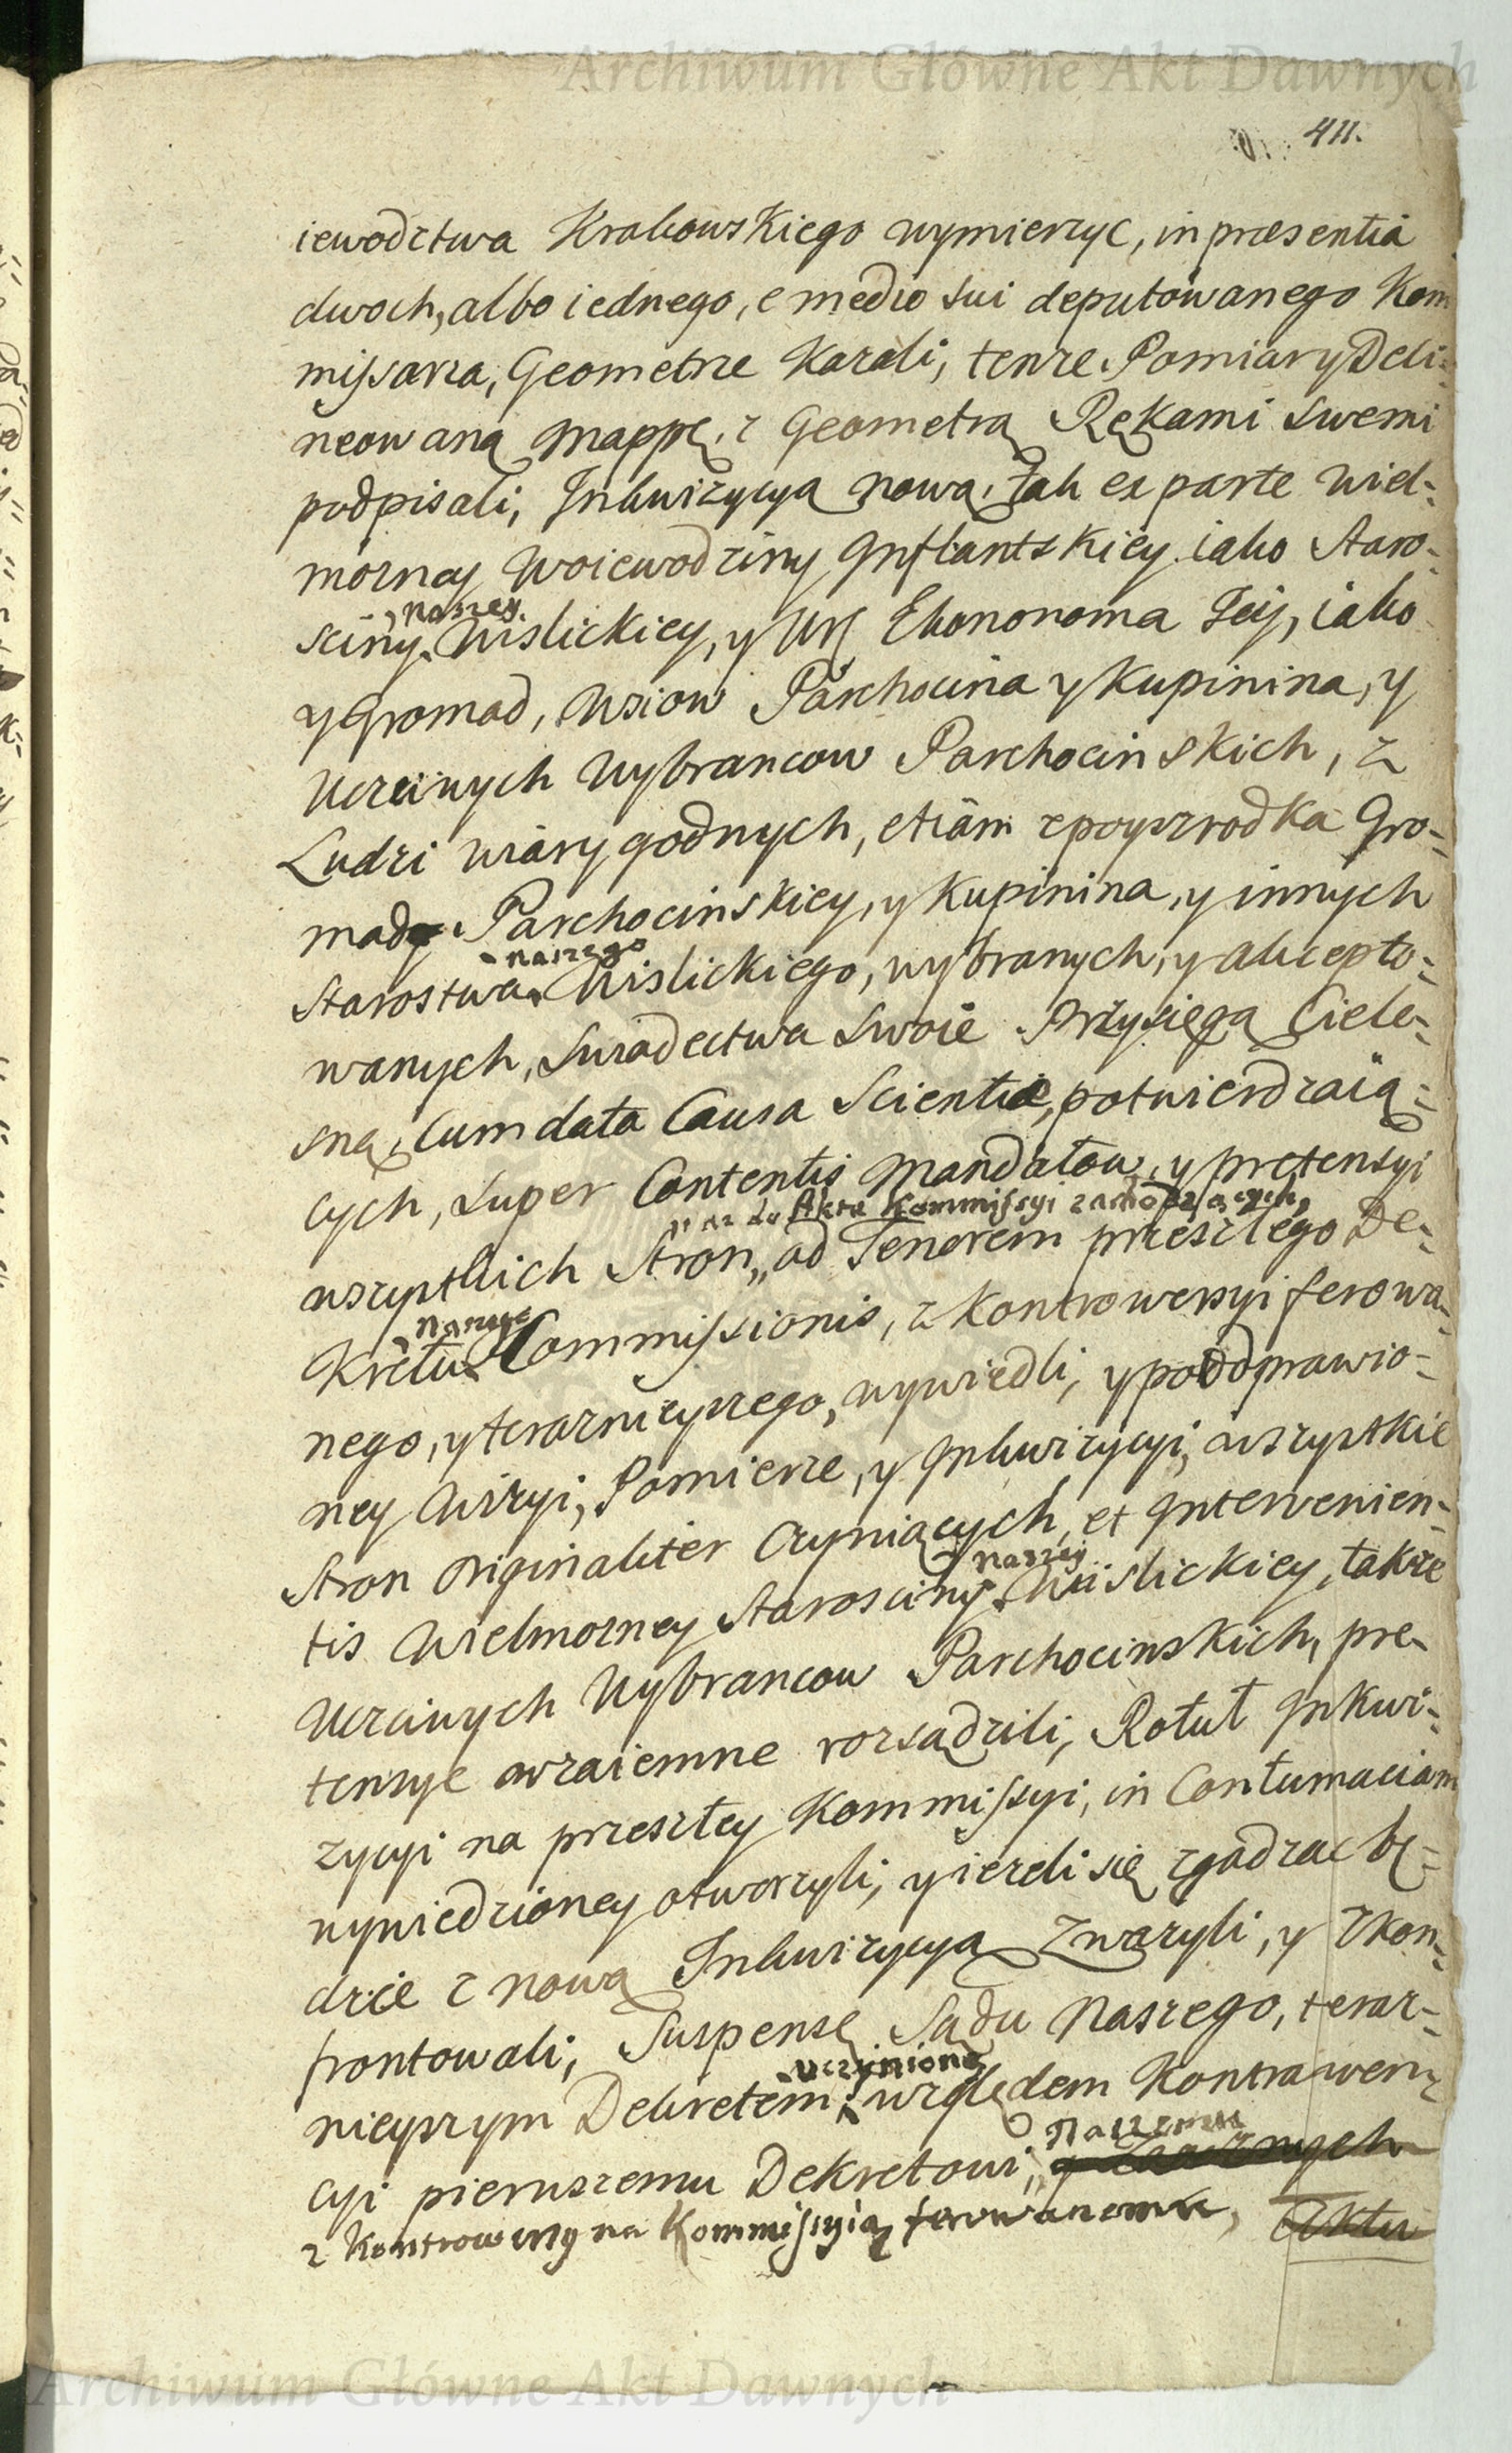 Archiwum Główne Akt Dawnych
411.
iewodztwa Krakowskiego wymierzyc, in præsentia
dwoch, albo iednego, e medio sui deputowanego Kom
missarza, Geometrze Kazali, tenze Pomiary Deli-
neowaną Mappę, z Geometrą Rękami swemi
podpisali, Inkwizycyą nową, tak ex parte Wiel-
mozney Woiewodziny Inflantskiey iako Staro-
naszey
sciny Wislickiey, y Ur. Ekononoma Jey, iako
y Gromad, Wsiow Parchocina y Kupinina, y
Uczciwych Wybrancow Parchocinskich, z
Ludzi wiary godnych, etiam zpoyszrodka Gro-
mady Parchocinskiey, y Kupinina, y innych
naszego
Starostwa Wislickiego, wybranych, y akcepto-
wanych, Swiadectwa Swoie Przysięgą Ciele-
sną, Cum data Causa Scientiæ, potwierdzaią-
cych, Super Contentis Mandatow, y pretensyi
Akta Kommissyi zachodzących,
wszystkich Stron, ad Tenorem przeszłego De-
Kretu Commissionis, z Kontrowersyi ferowa-
nego, y teraznieyszego, wywiedli, y po odprawio-
ney Wizyi, Pomierze, y Inkwizycyi, wszystkie
Stron Originaliter Czyniących, et Intervenien-
naszey
tis Wielmozney Starosciny Wislickiey, takze
Uczciwych Wybrancow Parchocinskich, pre-
tensye wzaiemne rozsądzili, Rotuł Inkwi-
zycyi na przeszłey Kommissyi, in Contumaciam
wywiedzioney otworzyli, y iezeli się zgadzac bę-
dzie z nową Inkwizycyą Zwazyli, y Zkon-
frontowali, Suspensę Sądu Naszego, teraz-
uczynioną
nieyszym Dekretem, względem Kontrawen-
Naszemu
cyi pierwszemu Dekretowi,
z Kontrowersy na Kommissyią ferowanemu, Aktu
Archiwum Główne Akt Dawnych